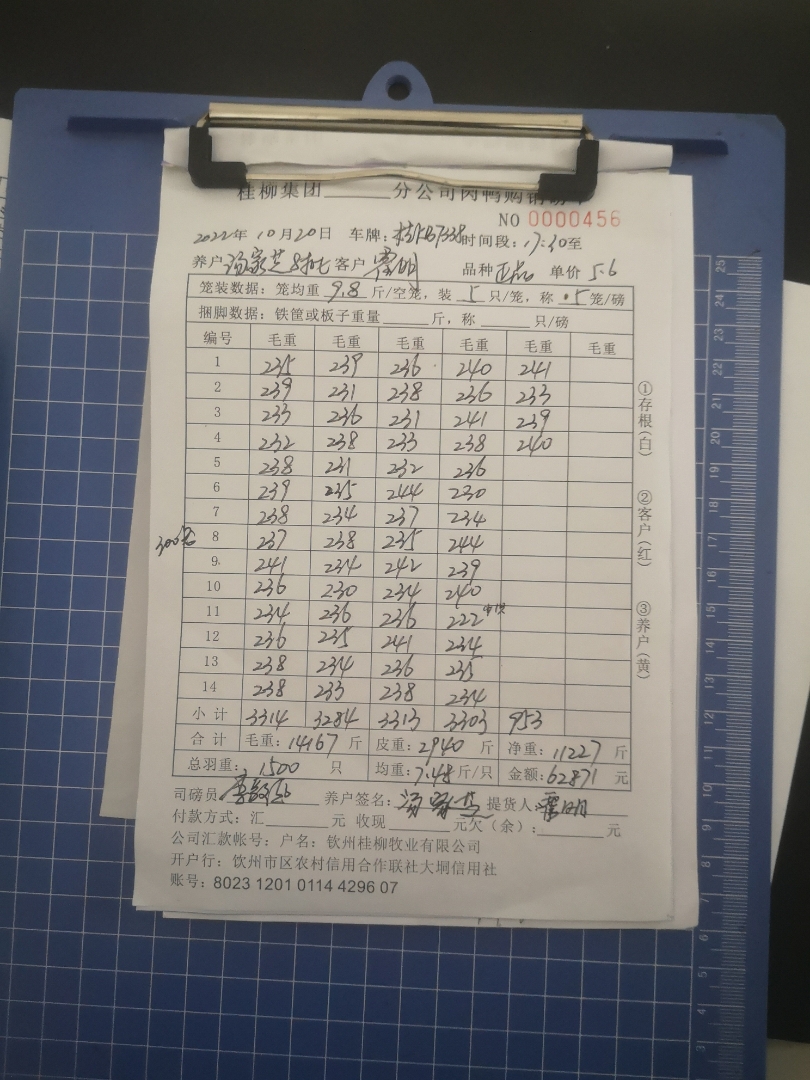 桂柳集团______分公司肉鸭购销磅单
NO 0000456
2022年 10月20日 车牌: 时间段:17:30至
养户 客户 品种 正品 单价 5.6
笼装数据:笼均重 9.8 斤/空笼,装 5 只/笼,称 5 笼/磅
捆脚数据:铁筐或板子重量______斤,称______只/磅
编号 毛重 毛重 毛重 毛重 毛重 毛重
1 235 239 236 240 241
2 239 231 238 236 233
3 233 236 231 241 239
4 232 238 233 238 240
5 238 231 232 236
6 239 235 244 230
7 238 234 237 234
300笼
8 237 238 235 244
9 241 234 242 239
10 236 230 234 240
11 234 236 236 222
12 236 235 241 234
13 238 234 236 235
14 238 233 238 234
小计 3314 3284 3313 3303 953
合计 毛重:14167 斤 皮重:2940 斤 净重:11227 斤
总羽重: 1500 只 均重:7.48斤/只 金额:62871 元
司磅员: 养户签名: 提货人:
付款方式:汇______元 收现______元欠(余):______元
公司汇款帐号:户名:钦州桂柳牧业有限公司
开户行:钦州市区农村信用合作联社大垌信用社
账号:8023 1201 0114 4296 07
①存根(白) ②客户(红) ③养户(黄)
25
24
23
22
21
20
19
18
17
16
15
14
13
12
11
10
9
8
7
6
5
4
3